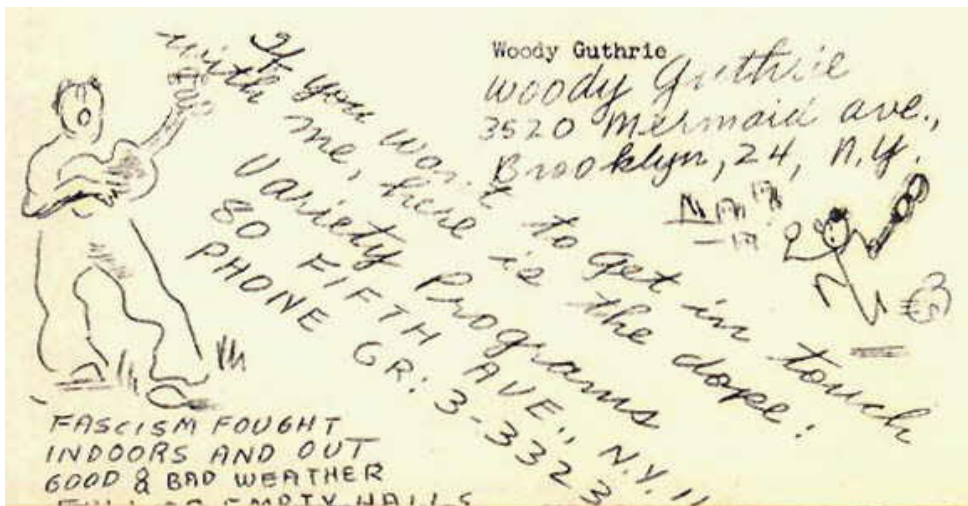 Woody Guthrie
Woody Guthrie
3520 Mermaid ave.,
Brooklyn, 24, N.Y.
If you want to get in touch
with me, here is the dope:
Variety Programs
80 FIFTH AVE., N.Y. 11
PHONE GR: 3-3323
FASCISM FOUGHT
INDOORS AND OUT
GOOD & BAD WEATHER
FULL OR EMPTY HALLS